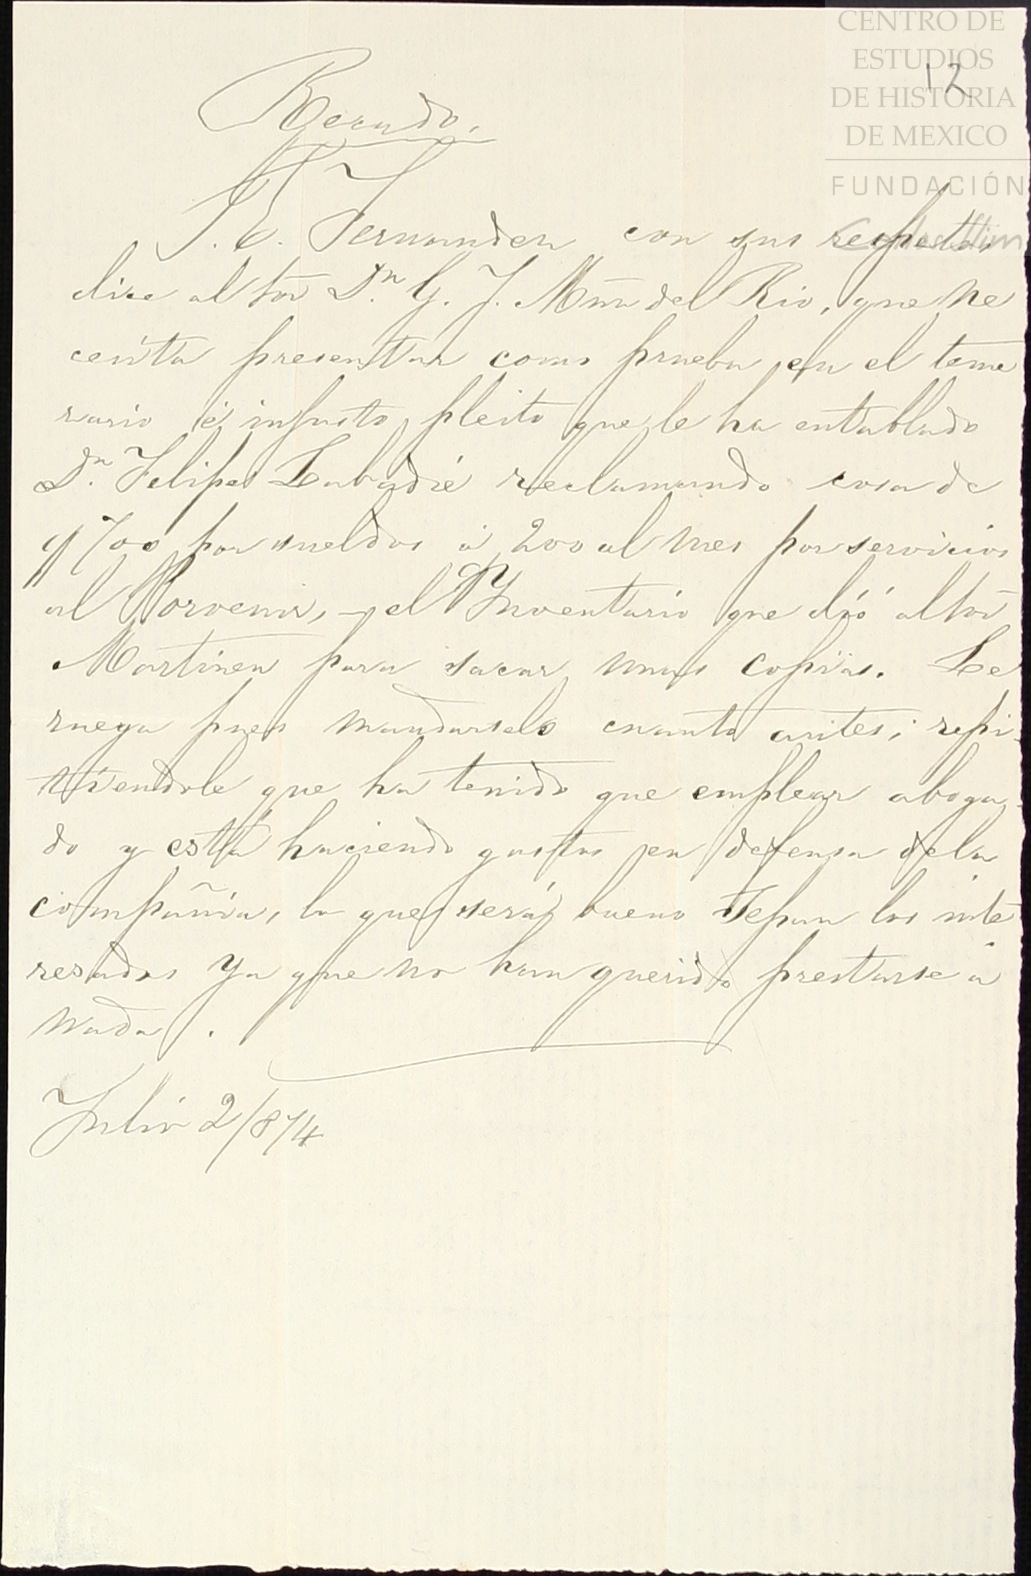 CENTRO DE
ESTUDIOS
DE HISTORIA
DE MEXICO
FUNDACIÓN
12
Recado.
J. E. Fernandez con sus respetos
dice al Sor Dn. G. J. Mña del Rio, que ne
cesita presentar como prueba, en el teme
rario é injusto pleito que le ha entablado
Dn. Felipe Labadié reclamando cosa de
$700 por sueldos á 200 al mes por servicios
al Porvenir, el Inventario que dió al Sor
Martinez para sacar unas copias. Le
ruega pues mandarselo cuanto antes; repi-
tiendole que ha tenido que emplear aboga-
do y está haciendo gastos en defensa dela
compañia, lo que será bueno sepan los inte
resados ya que no han querido prestarse á
nada.
Julio 2/874